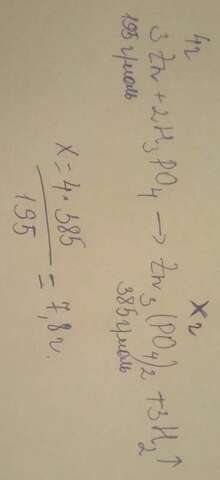 4г X г
3 Zn + 2H3PO4 → Zn3(PO4)2 + 3H2↑
195 г/моль 385 г/моль
X = 4 · 385 / 195 = 7,8 г.